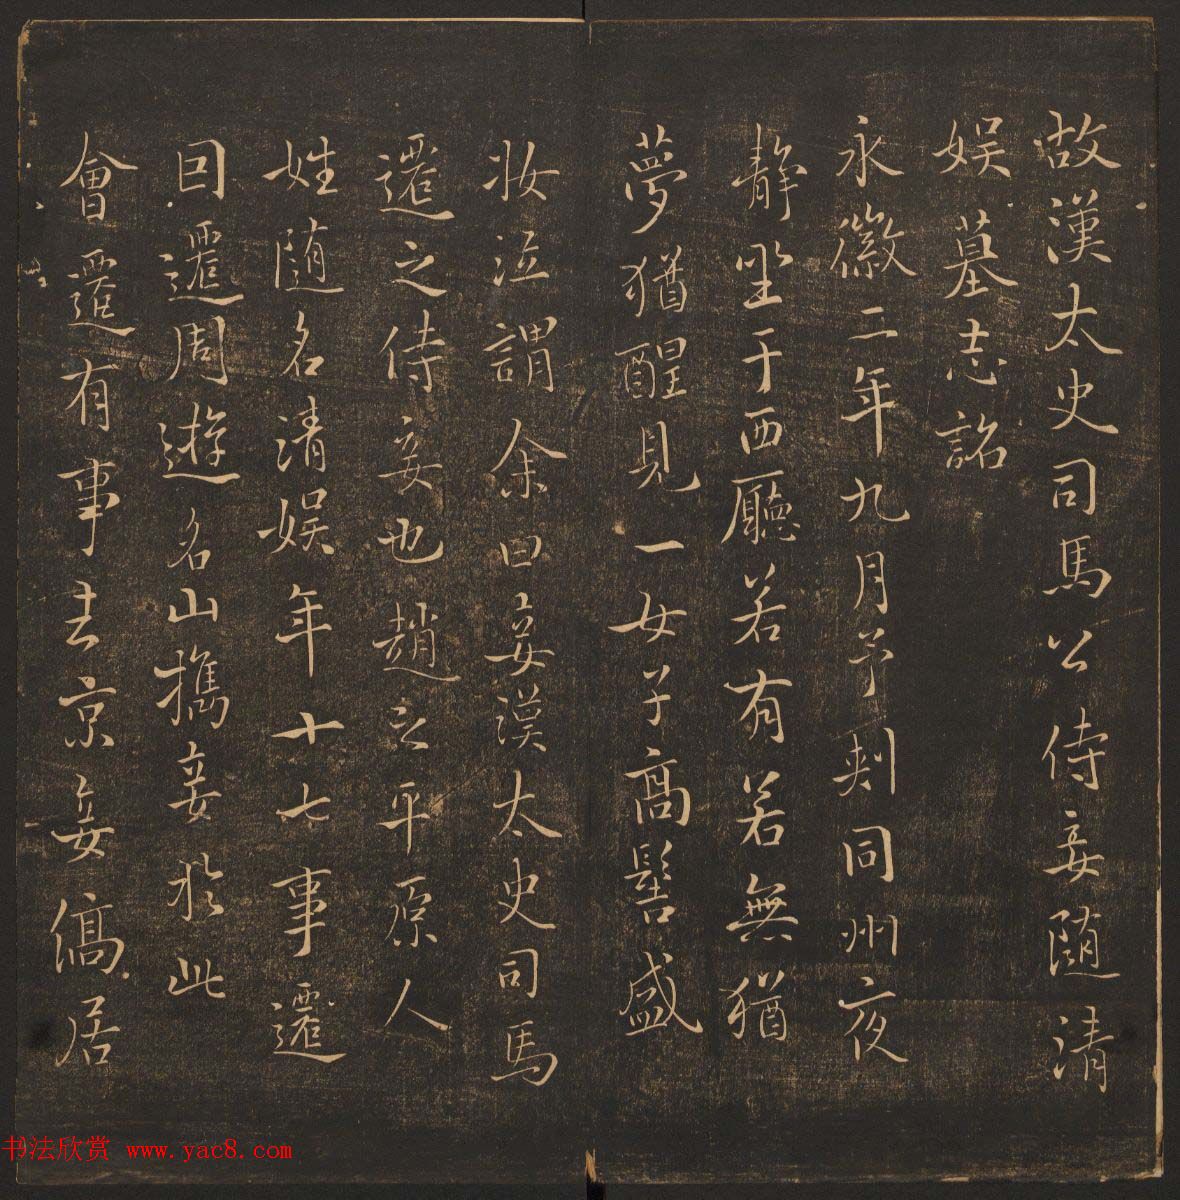 故漢太史司馬公侍妾隨清
娱墓志銘
永徽二年九月予刺同州夜
靜坐于西廳若有若無猶
夢猶醒見一女子髙髻盛
妝泣謂余曰妾漢太史司馬
遷之侍妾也趙之平原人
姓隨名清娱年十七事遷
因遷周遊名山攜妾於此
會遷有事去京妾僑居
书法欣赏 www.yac8.com